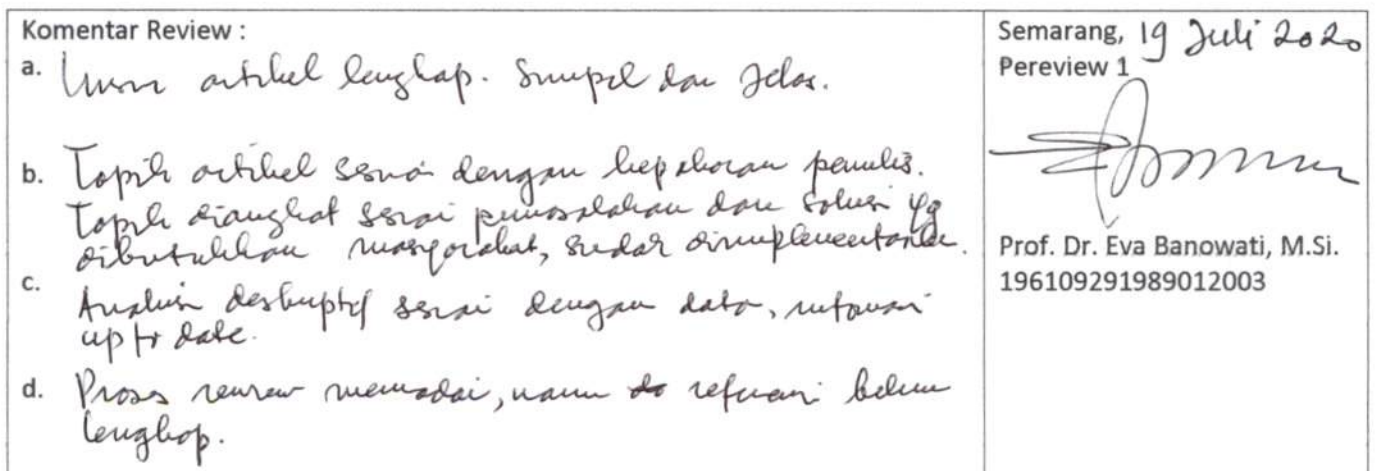 Komentar Review :
a. Unsur artikel lengkap. Simpel dan Jelas.
b. Topik artikel sesuai dengan kepakaran penulis.
Topik diangkat sesuai permasalahan dan solusi yg
dibutuhkan masyarakat, sudah diimplementasikan.
c. Analisis deskriptif sesuai dengan data,
up to date.
d. Proses review memadai, namun referensi belum
lengkap.
Semarang, 19 Juli 2020
Pereview 1
Prof. Dr. Eva Banowati, M.Si.
196109291989012003